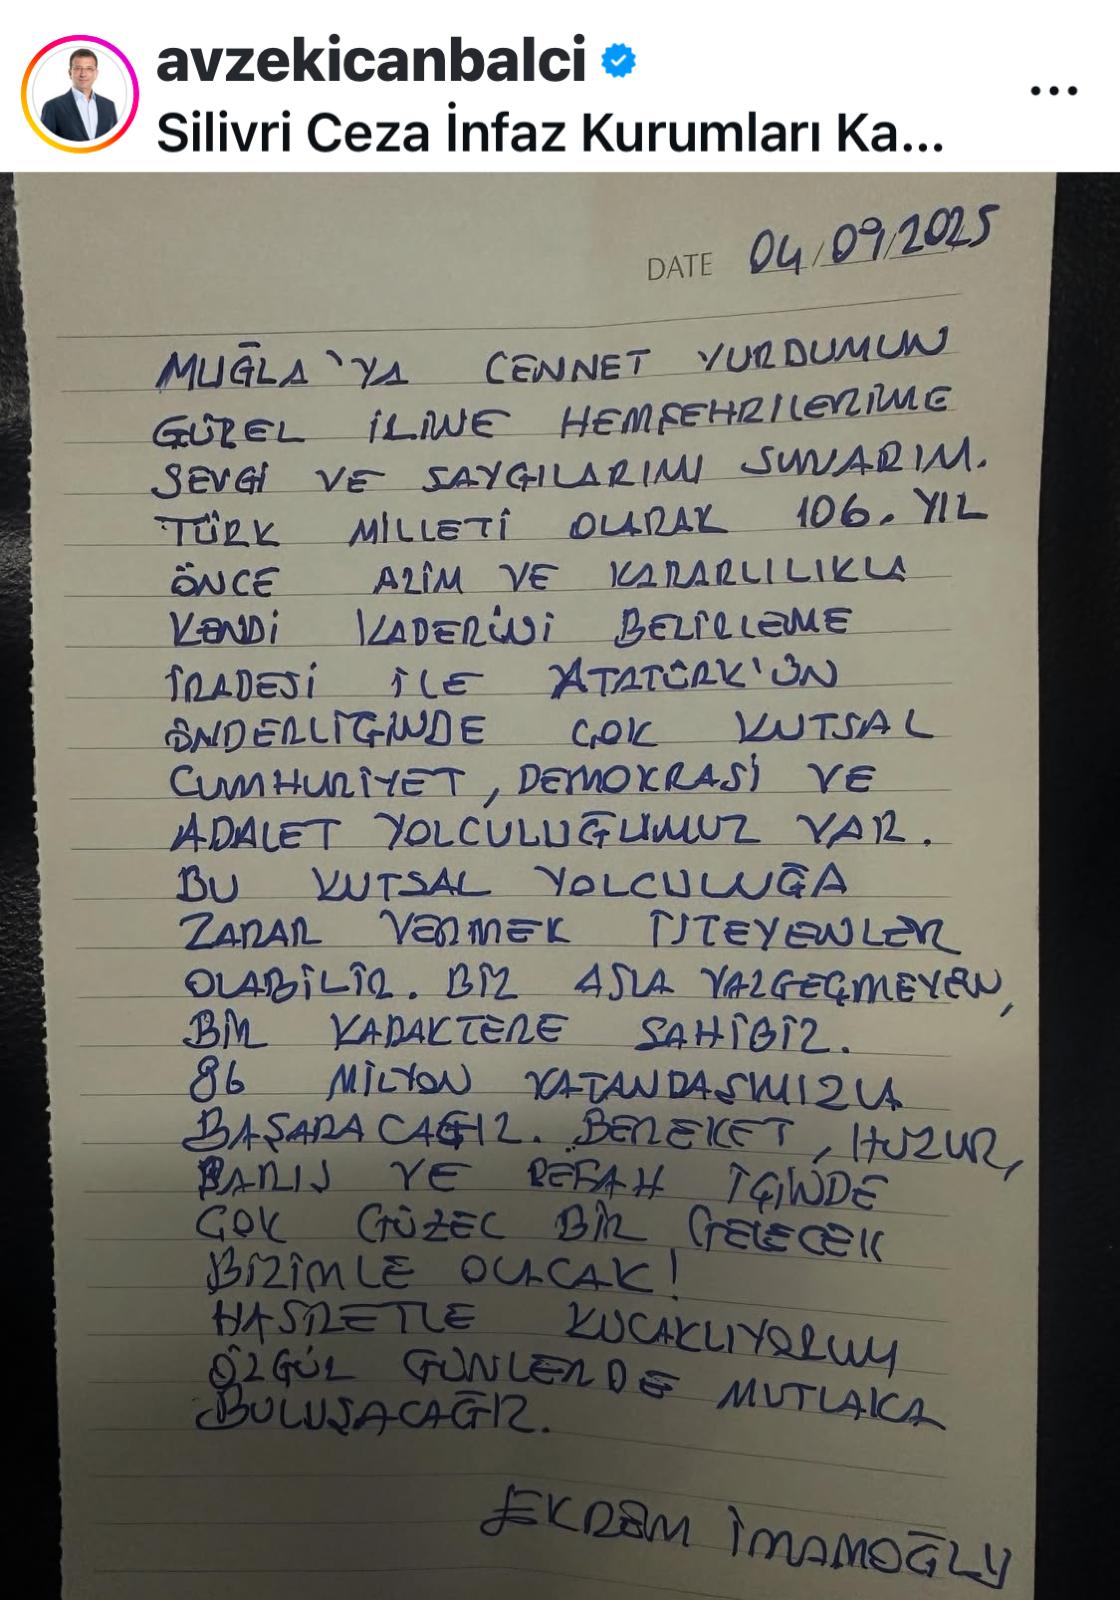 avzekicanbalci
Silivri Ceza İnfaz Kurumları Ka...
DATE 04/09/2025
MUĞLA'YA CENNET YURDUMUN
GÜZEL İLİNE HEMŞEHRİLERİME
SEVGİ VE SAYGILARIMI SUNARIM.
TÜRK MİLLETİ OLARAK 106. YIL
ÖNCE AZİM VE KARARLILIKLA
KENDİ KADERİNİ BELİRLEME
İRADESİ İLE ATATÜRK'ÜN
ÖNDERLİĞİNDE ÇOK KUTSAL
CUMHURİYET, DEMOKRASİ VE
ADALET YOLCULUĞUMUZ VAR.
BU KUTSAL YOLCULUĞA
ZARAR VERMEK İSTEYENLER
OLABİLİR. BİZ ASLA VAZGEÇMEYEN,
BİR KARAKTERE SAHİBİZ.
86 MİLYON VATANDAŞIMIZLA
BAŞARACAĞIZ. BEREKET, HUZUR,
BARIŞ VE REFAH İÇİNDE
ÇOK GÜZEL BİR GELECEK
BİZİMLE OLACAK!
HASRETLE KUCAKLIYORUM
ÖZGÜR GÜNLERDE MUTLAKA
BULUŞACAĞIZ.
EKREM İMAMOĞLU